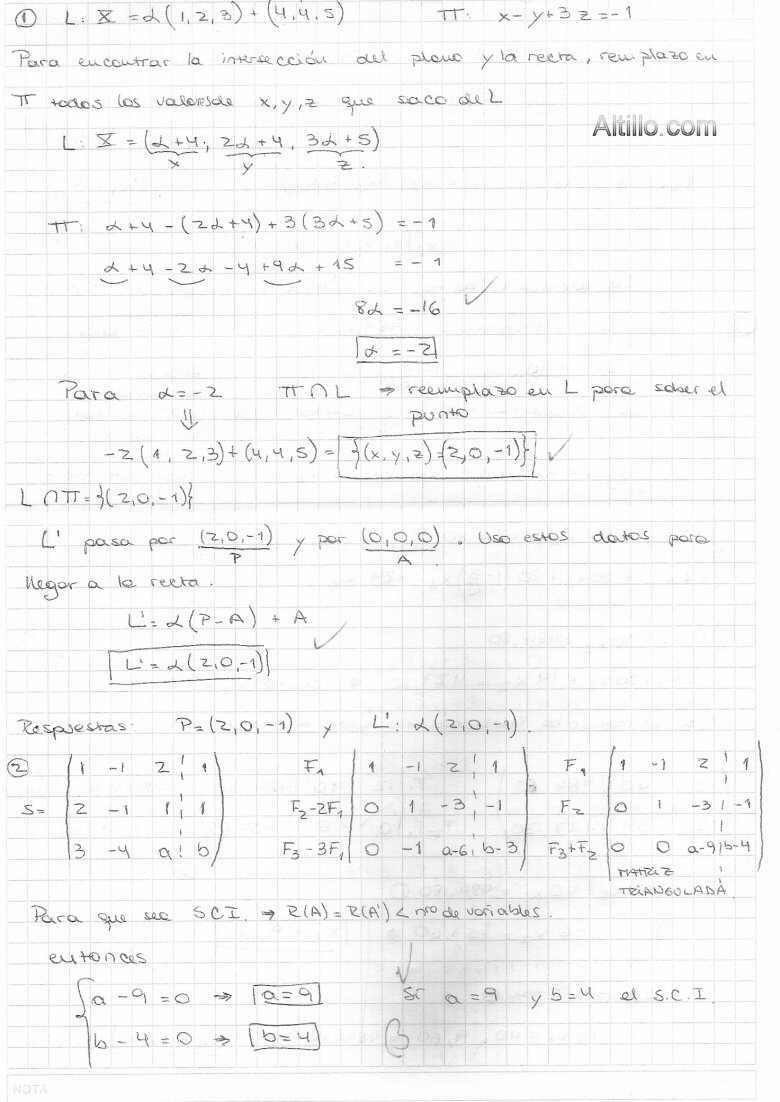 ① L: X = α(1,2,3) + (4,4,5) π: x-y+3z=-1
Para encontrar la intersección del plano y la recta, remplazo en
π todos los valores de x, y, z que saco de L
Altillo.com
L: X = (α+4, 2α+4, 3α+5)
x y z.
π: α+4-(2α+4)+3(3α+5) = -1
α+4-2α-4+9α+15 = -1
8α = -16 ✓
α = -2
Para α=-2 π∩L → reemplazo en L para saber el
⇓ punto
-2(1,2,3)+(4,4,5) = {(x,y,z)=(2,0,-1)} ✓
L∩π={(2,0,-1)}
L' pasa por (2,0,-1) y por (0,0,0). Uso estos datos para
P A
llegar a la recta.
L'= α(P-A) + A
L'= α(2,0,-1) ✓
Respuestas: P=(2,0,-1) y L': α(2,0,-1).
② 1 -1 2 ¦ 1 F₁ 1 -1 2 ¦ 1 F₁ 1 -1 2 ¦ 1
S= 2 -1 1 ¦ 1 F₂-2F₁ 0 1 -3 ¦ -1 F₂ 0 1 -3 ¦ -1
3 -4 a ¦ b F₃-3F₁ 0 -1 a-6 ¦ b-3 F₃+F₂ 0 0 a-9 ¦ b-4
MATRIZ
TRIANGULADA
Para que sea S.C.I. → R(A)=R(A') < nro de variables.
entonces
a-9=0 → a=9 ✓ Si a=9 y b=4 el S.C.I.
b-4=0 → b=4 B
NOTA